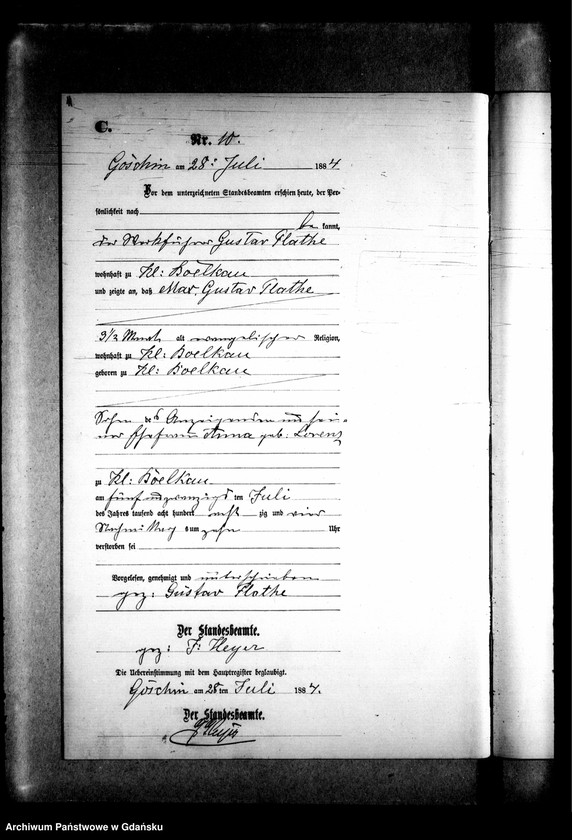 C.
Nr. 10.
Göschin am 28: Juli 1884
Vor dem unterzeichneten Standesbeamten erschien heute, der Per-
sönlichkeit nach
be kannt,
der Werkführer Gustav Plathe
wohnhaft zu Kl: Boelkau
und zeigte an, daß Max, Gustav Plathe
3 1/2 Monath alt evangelischer Religion,
wohnhaft zu Kl: Boelkau
geboren zu Kl: Boelkau
Sohn des Anzeigenden und sei-
ner Ehefrau Anna geb: Lorenz
zu Kl: Boelkau
am fünf und zwanzigsten Juli
des Jahres tausend acht hundert acht zig und vier
Nachmittag s um zehn Uhr
verstorben sei
Vorgelesen, genehmigt und unterschrieben
gez: Gustav Plathe
Der Standesbeamte.
gez: F: Heyer
Die Uebereinstimmung mit dem Hauptregister beglaubigt.
Göschin am 28 ten Juli 1884.
Der Standesbeamte.
F Heyer
Archiwum Państwowe w Gdańsku